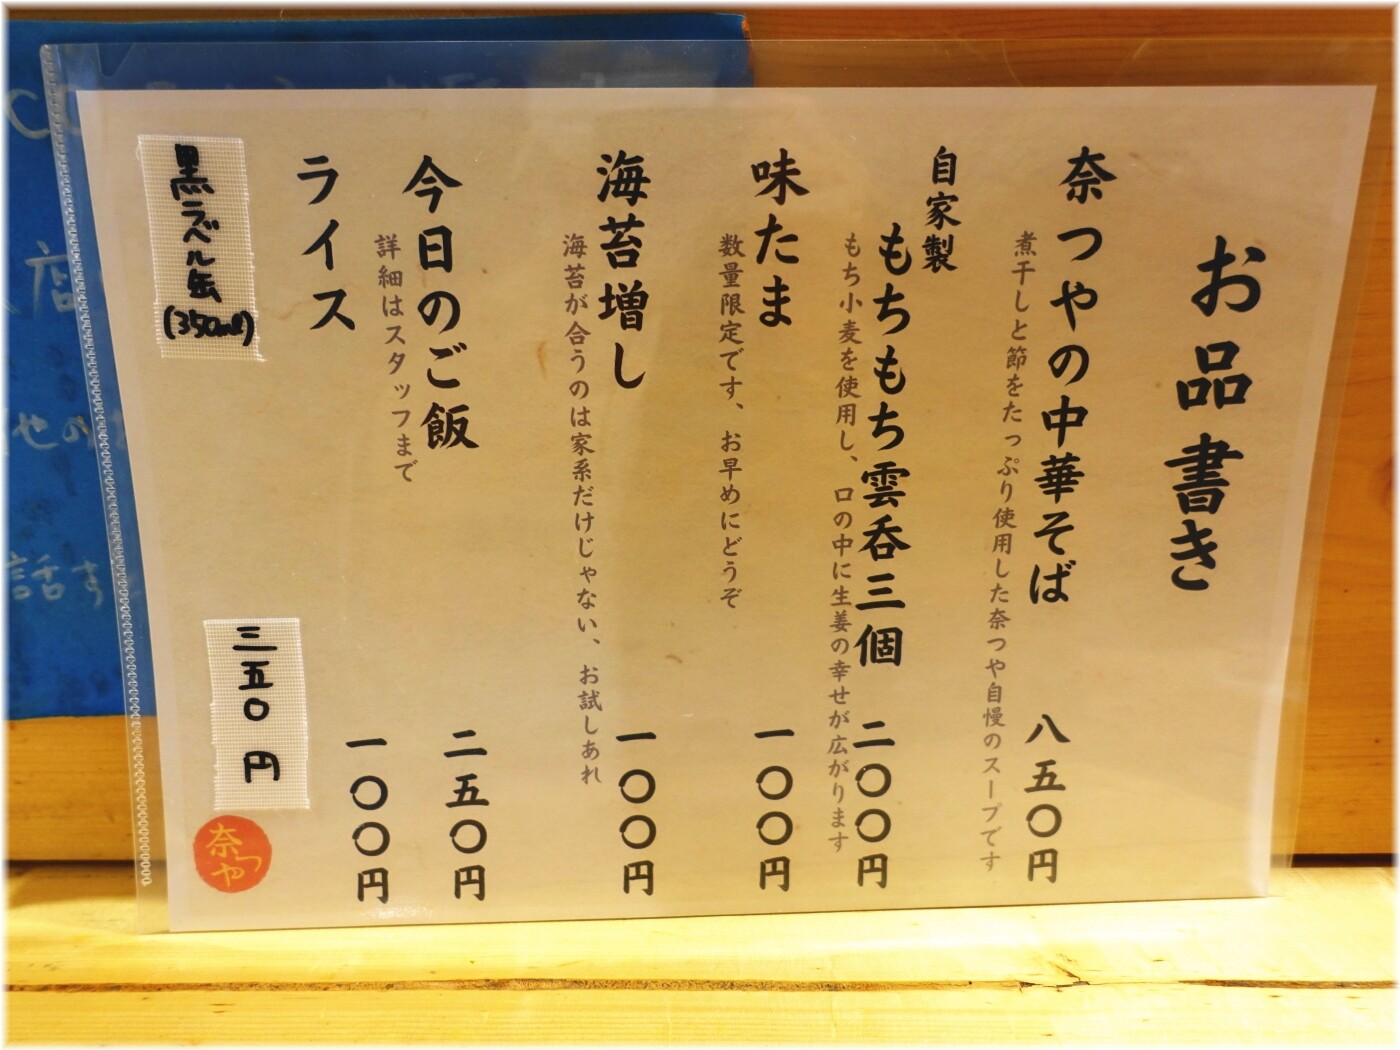 お品書き
奈つやの中華そば 八五〇円
煮干しと節をたっぷり使用した奈つや自慢のスープです
自家製
もちもち雲呑三個 二〇〇円
もち小麦を使用し、口の中に生姜の幸せが広がります
味たま 一〇〇円
数量限定です、お早めにどうぞ
海苔増し 一〇〇円
海苔が合うのは家系だけじゃない、お試しあれ
今日のご飯 二五〇円
詳細はスタッフまで
ライス 一〇〇円
黒ラベル缶(350ml) 三五〇円
奈つや